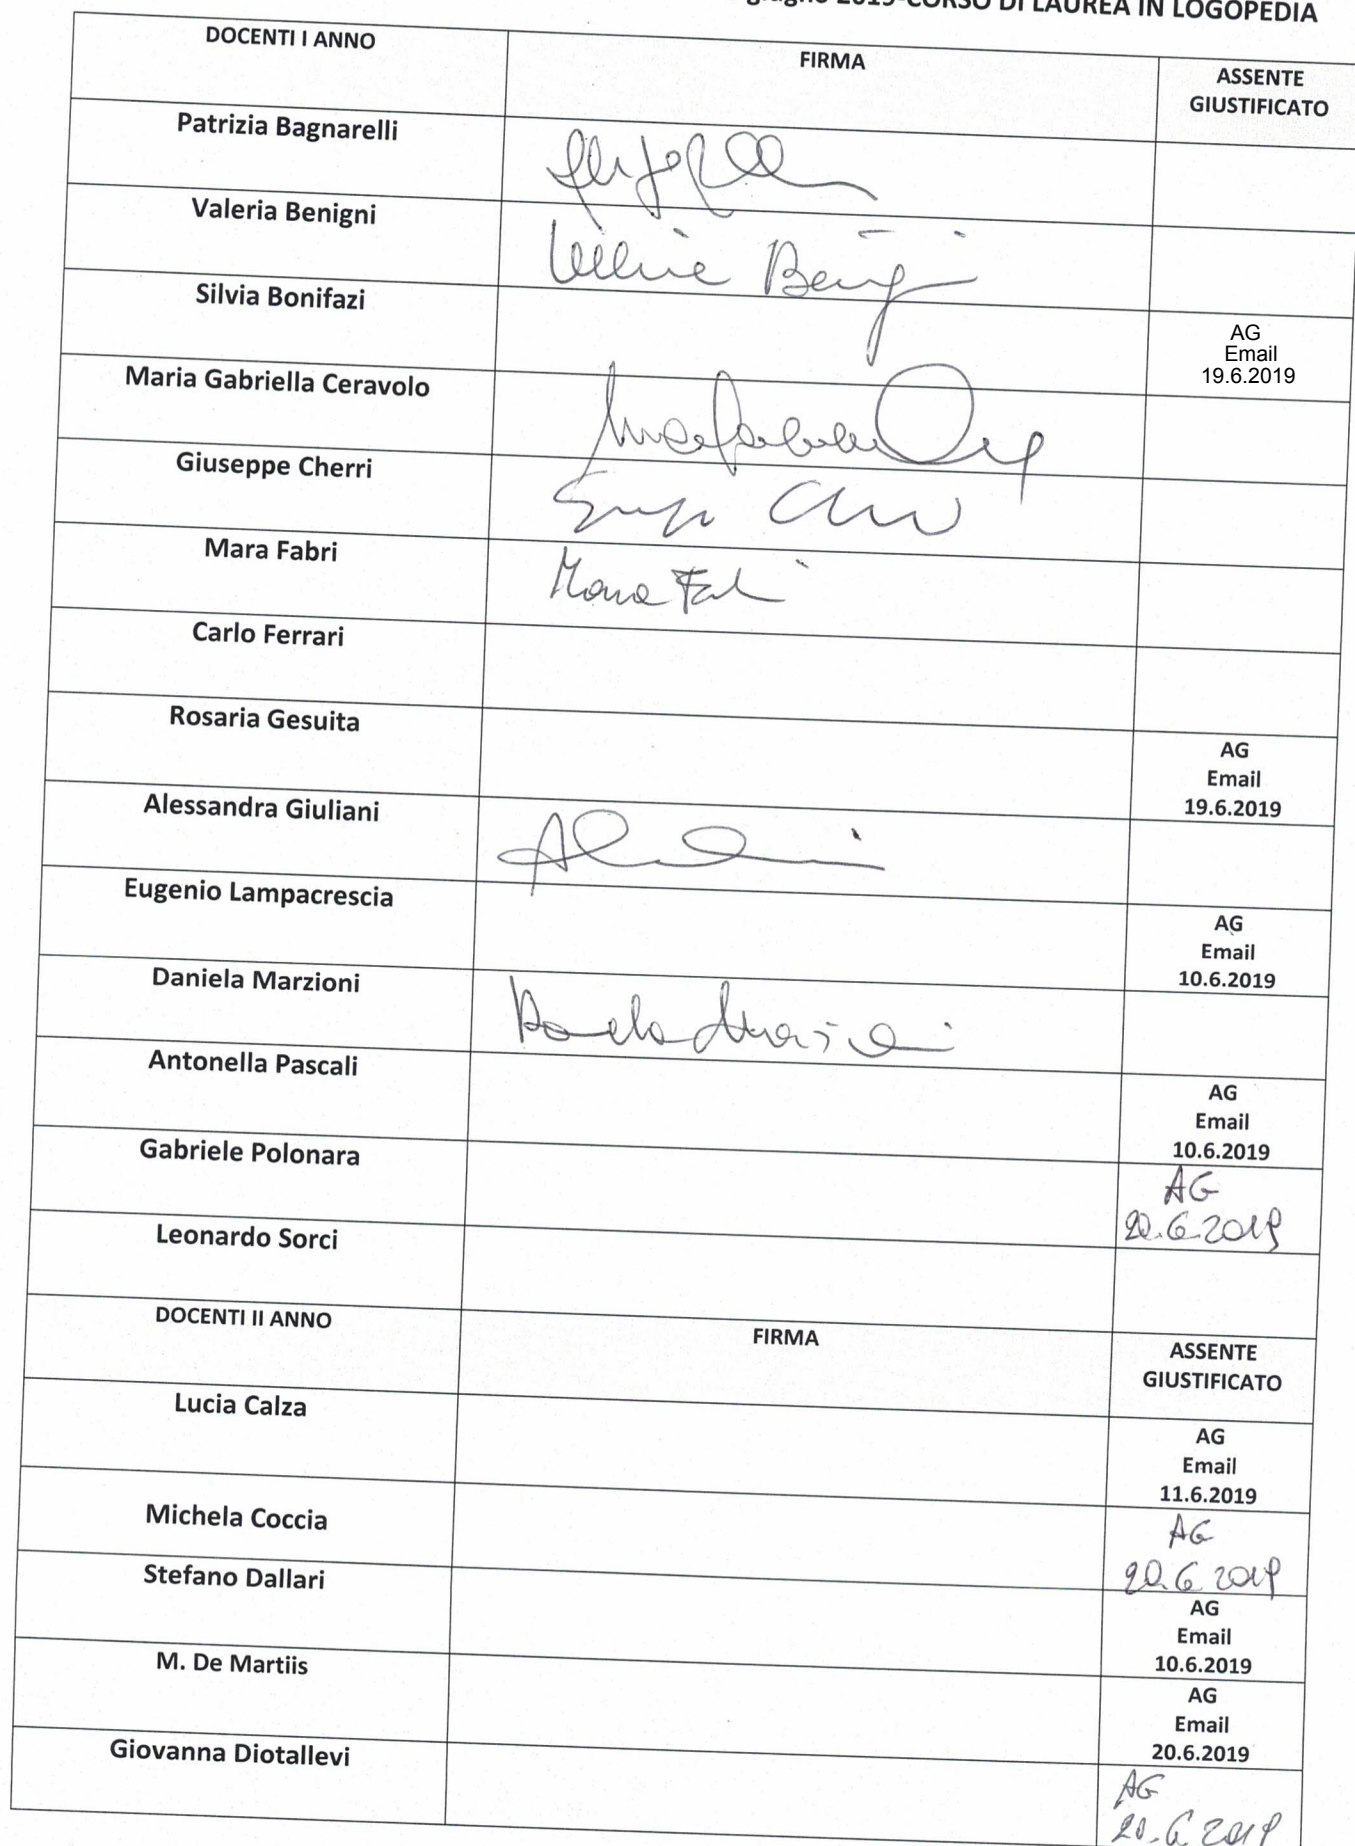 giugno 2019-CORSO DI LAUREA IN LOGOPEDIA
DOCENTI I ANNO
FIRMA
ASSENTE
GIUSTIFICATO
Patrizia Bagnarelli
Valeria Benigni
Silvia Bonifazi
AG
Email
19.6.2019
Maria Gabriella Ceravolo
Giuseppe Cherri
Mara Fabri
Mara Fabri
Carlo Ferrari
Rosaria Gesuita
AG
Email
19.6.2019
Alessandra Giuliani
Eugenio Lampacrescia
AG
Email
10.6.2019
Daniela Marzioni
Antonella Pascali
AG
Email
10.6.2019
Gabriele Polonara
AG
20.6.2019
Leonardo Sorci
DOCENTI II ANNO
FIRMA
ASSENTE
GIUSTIFICATO
Lucia Calza
AG
Email
11.6.2019
Michela Coccia
AG
20.6.2019
Stefano Dallari
AG
Email
10.6.2019
M. De Martiis
AG
Email
20.6.2019
Giovanna Diotallevi
AG
20.6.2019